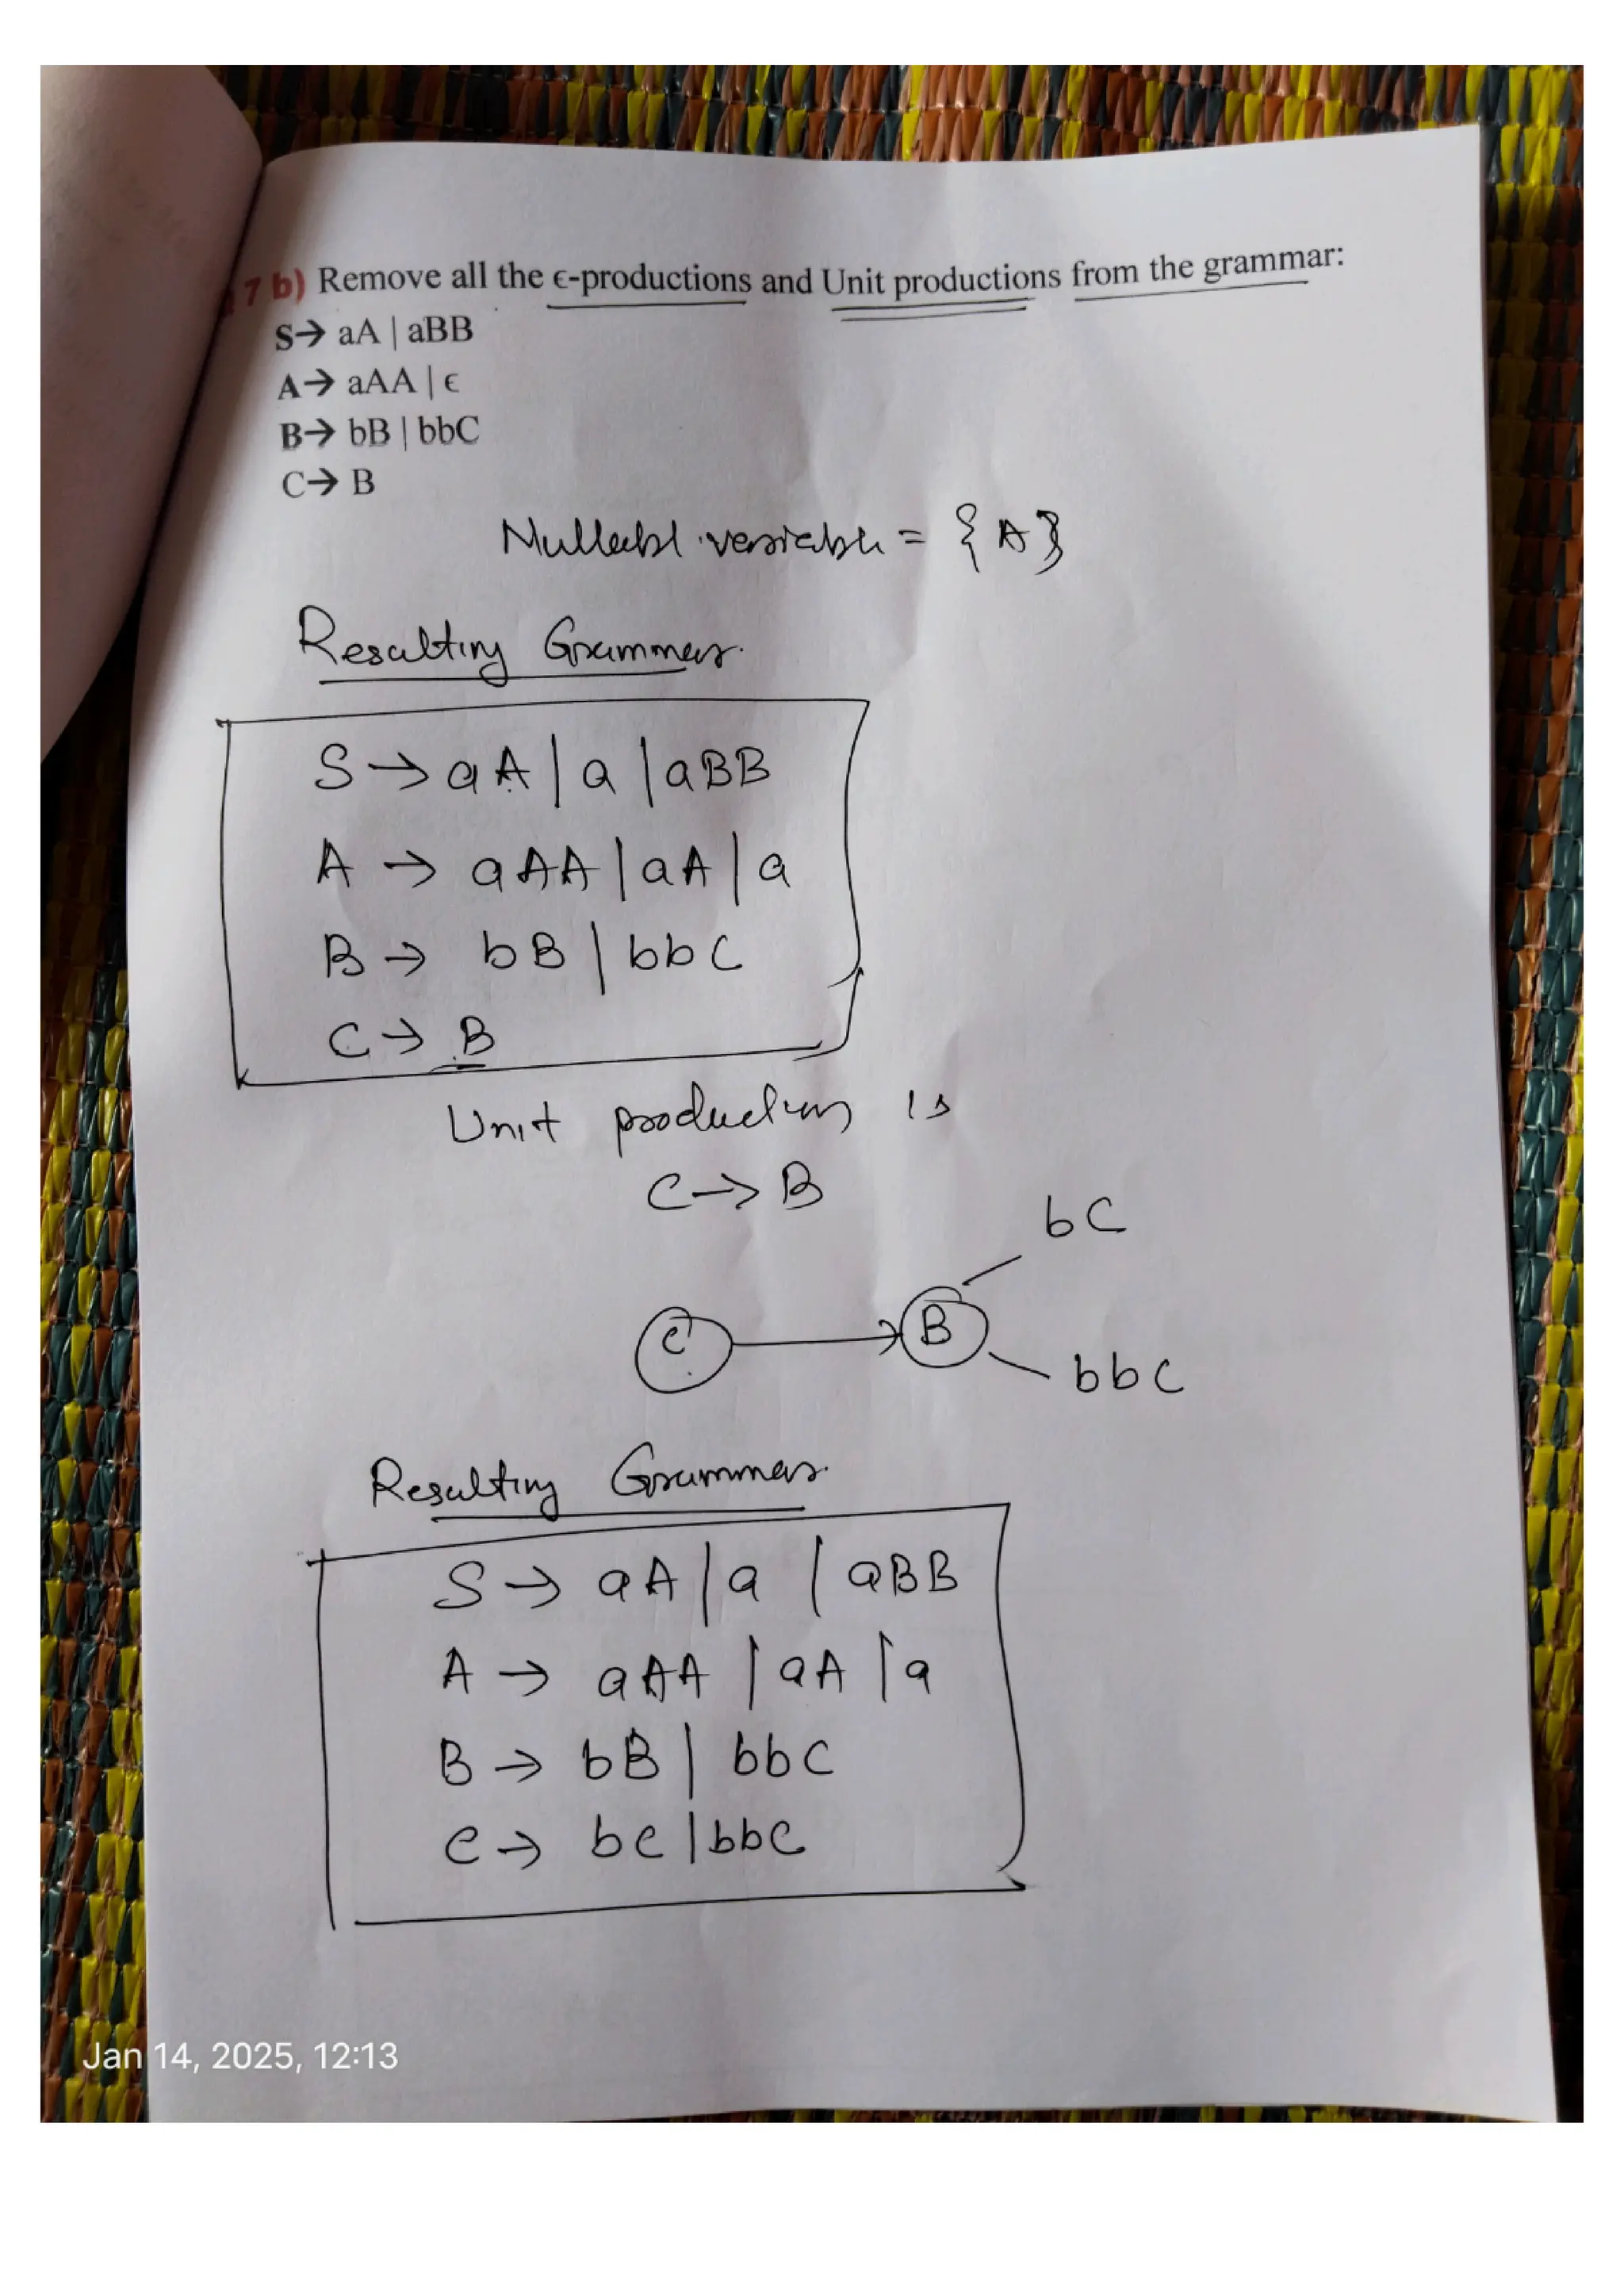 7 b) Remove all the ϵ-productions and Unit productions from the grammar:
S→ aA | aBB
A→ aAA | ϵ
B→ bB | bbC
C→ B
Nullabl variable = {A}
Resulting Grammar.
S → aA | a | aBB
A → aAA | aA | a
B → bB | bbC
C → B
Unit production is
C → B
bC
C → B
bbC
Resulting Grammar.
S → aA | a | aBB
A → aAA | aA | a
B → bB | bbC
C → bC | bbC
Jan 14, 2025, 12:13